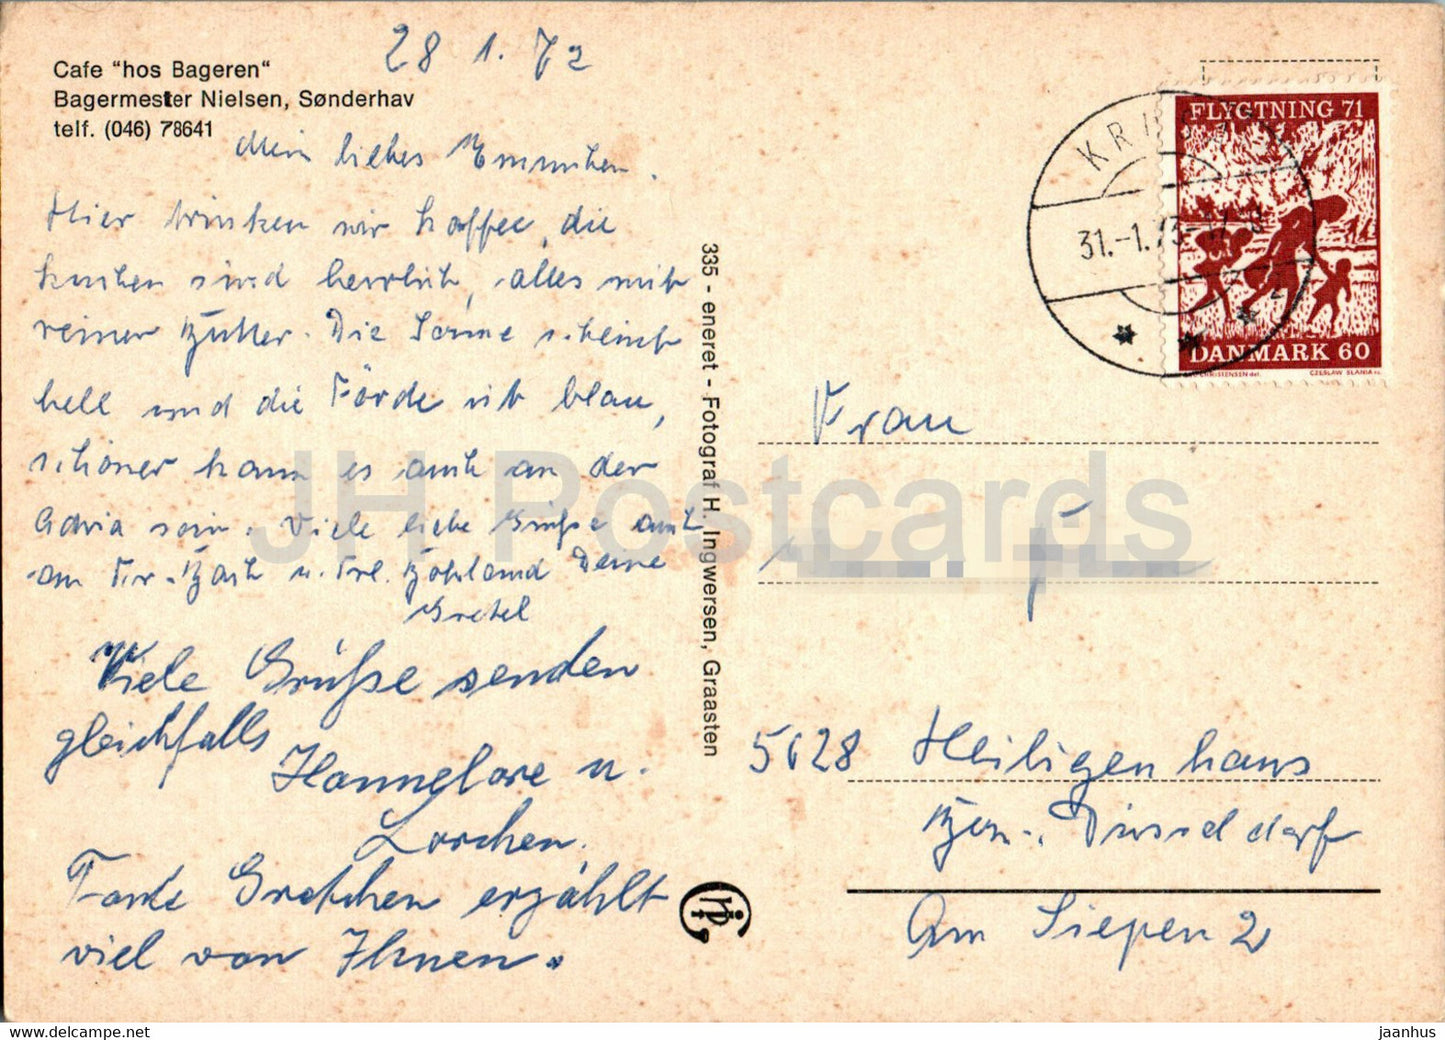 28 1. 72
Cafe "hos Bageren"
Bagermester Nielsen, Sønderhav
telf. (046) 78641
Mein liebes Emmchen.
Hier trinken wir Kaffee, die
Kuchen sind herrlich, alles mit
reiner Butter. Die Sonne scheint
hell und die Förde ist blau,
schöner kann es auch an der
Adria sein. Viele liebe Grüße auch
an Frl. u. Frl. Deine
Gretel
Viele Grüße senden
gleichfalls
Hannelore u.
Lorchen.
Tante Gretchen erzählt
viel von Ihnen.
335 - eneret - Fotograf H. Ingwersen, Graasten
FLYGTNING 71
DANMARK 60
CZESLAW SLANIA sc.
KR
31.-1.73-17
Frau
5628 Heiligenhaus
Bez. Düsseldorf
Am Siepen 2
JH Postcards
jaanhus